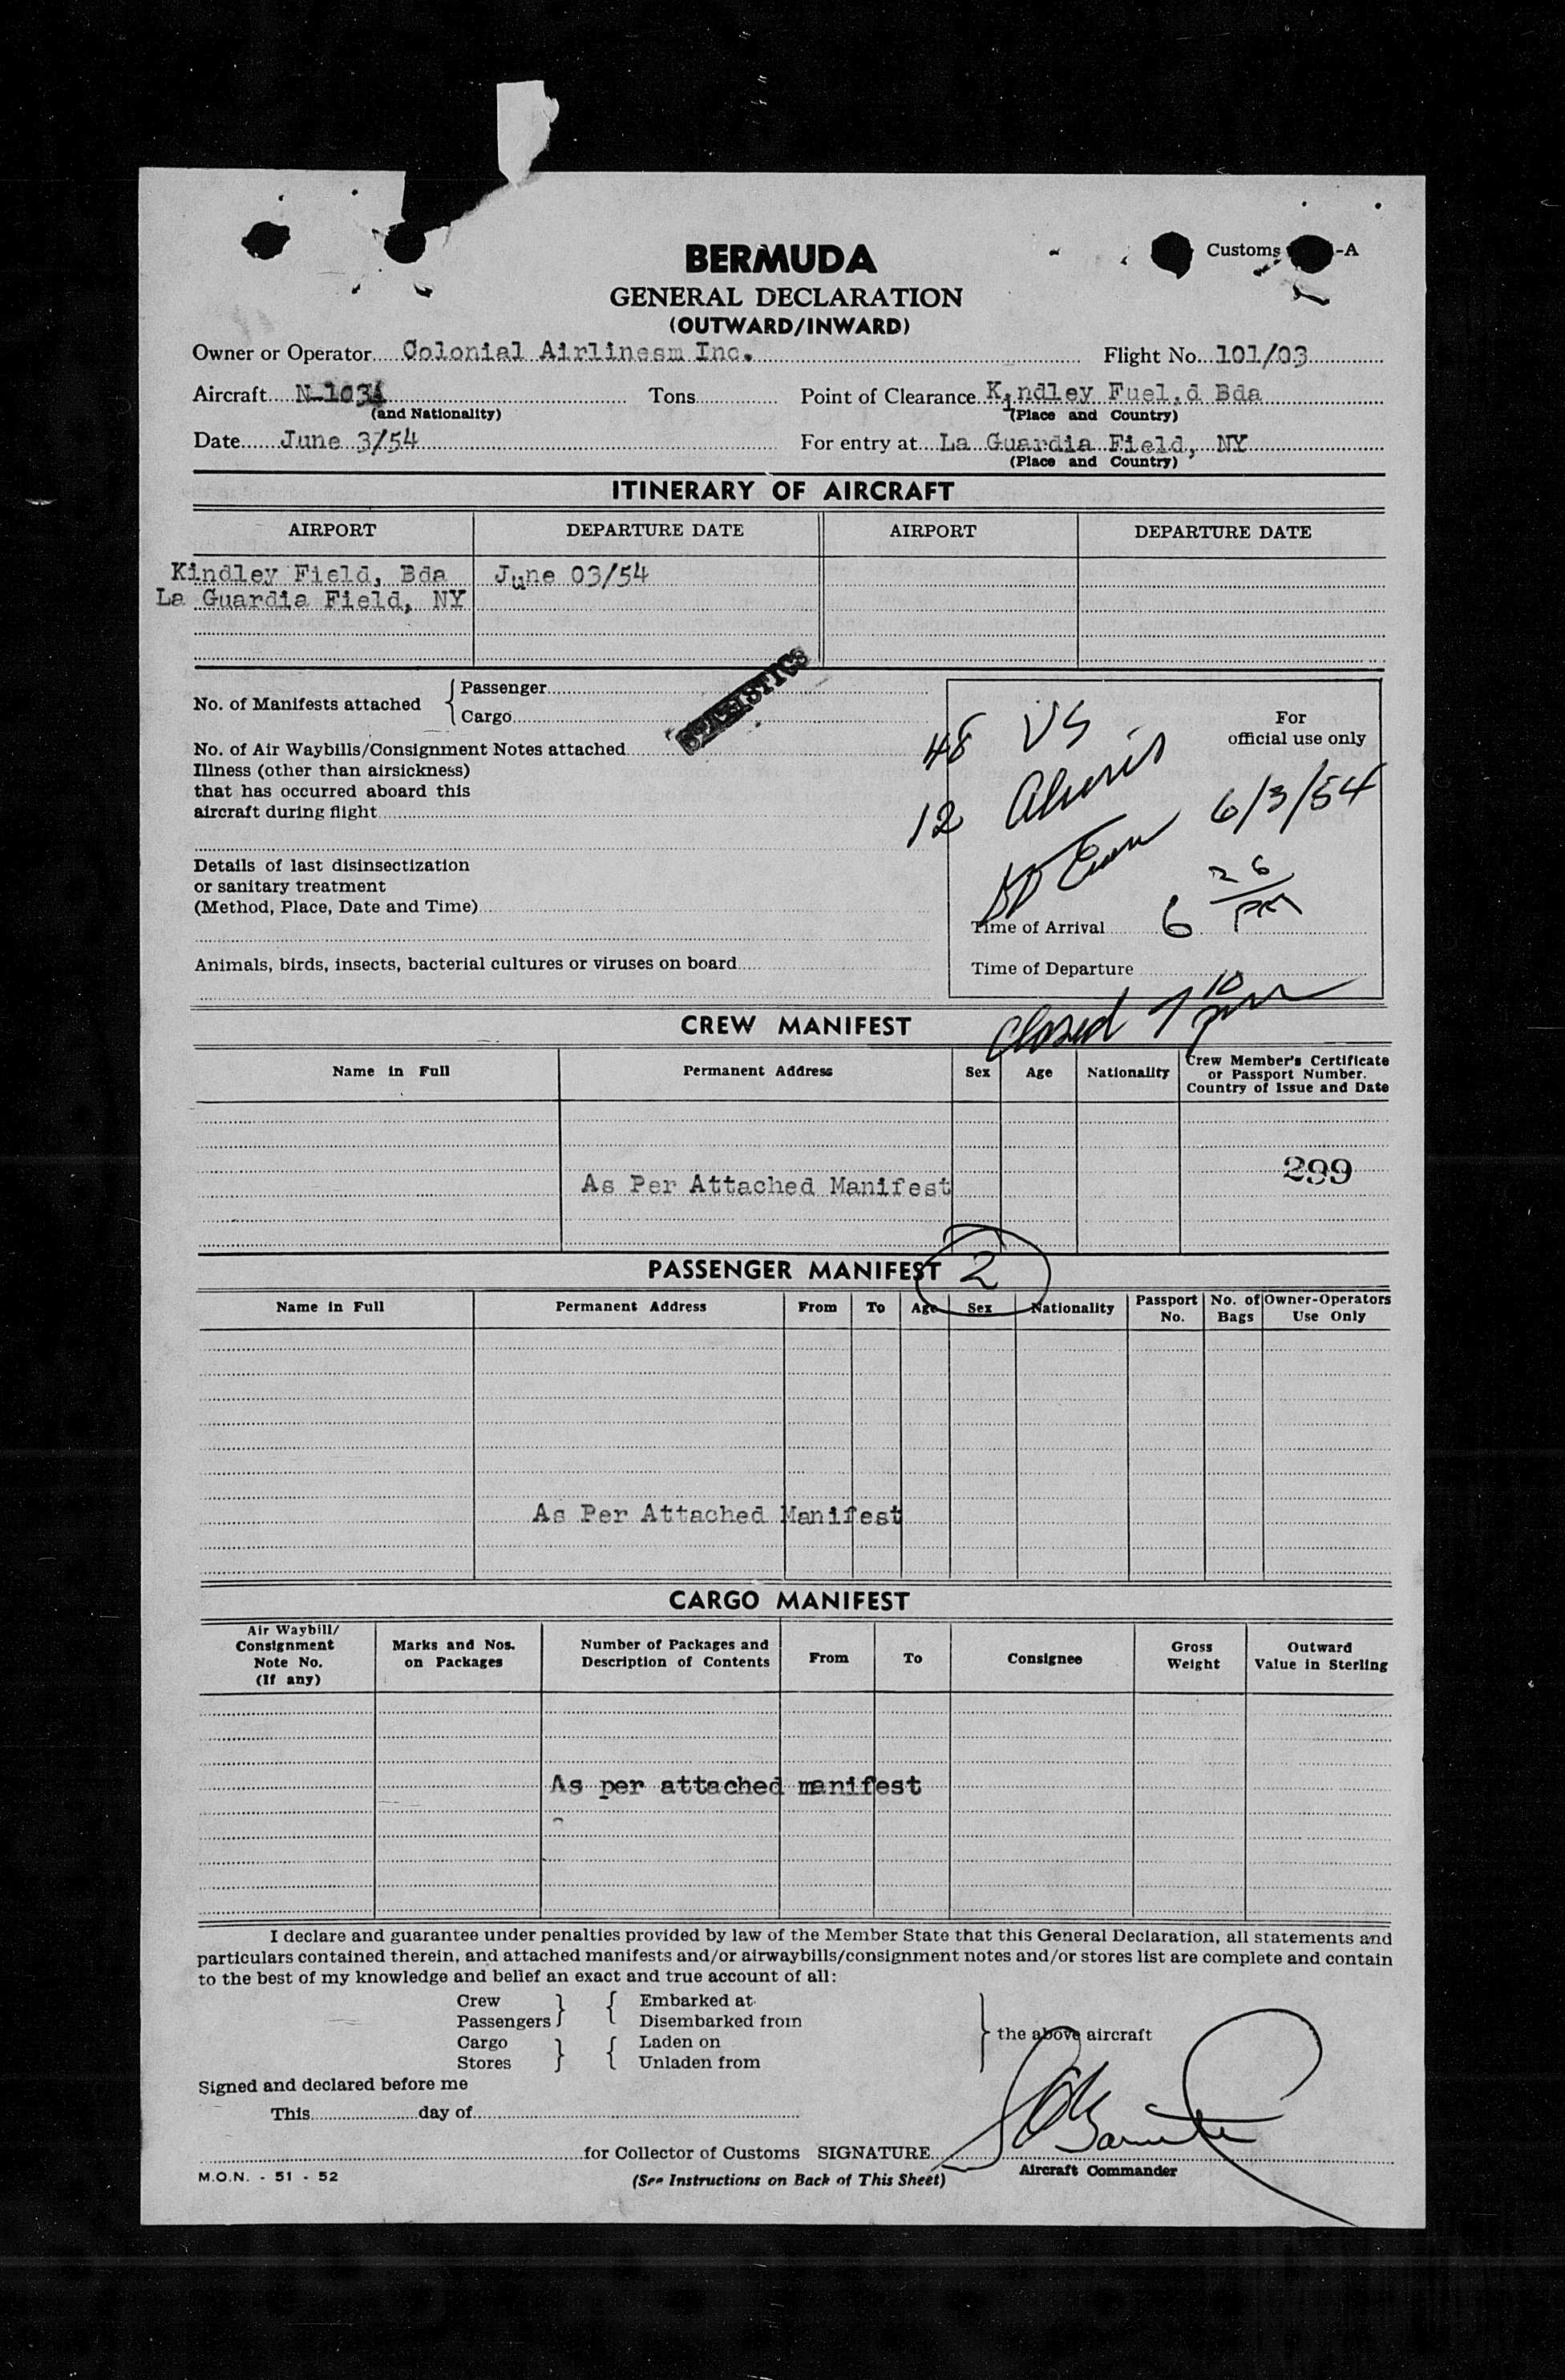 Customs -A
BERMUDA
GENERAL DECLARATION
(OUTWARD/INWARD)
Owner or Operator Colonial Airlinesm Inc. Flight No. 101/03
Aircraft N-1034 Tons Point of Clearance Kindley Fuel.d Bda
(and Nationality) (Place and Country)
Date June 3/54 For entry at La Guardia Field, NY
(Place and Country)
ITINERARY OF AIRCRAFT
AIRPORT DEPARTURE DATE AIRPORT DEPARTURE DATE
Kindley Field, Bda June 03/54
La Guardia Field, NY
STATISTICS
No. of Manifests attached { Passenger
Cargo
No. of Air Waybills/Consignment Notes attached
Illness (other than airsickness)
that has occurred aboard this
aircraft during flight
Details of last disinsectization
or sanitary treatment
(Method, Place, Date and Time)
Animals, birds, insects, bacterial cultures or viruses on board
For
official use only
48 US
12 Aliens
6/3/54
Time of Arrival 6 26 PM
Time of Departure
Closed 7 10 pm
CREW MANIFEST
Name in Full Permanent Address Sex Age Nationality Crew Member's Certificate
or Passport Number.
Country of Issue and Date
299
As Per Attached Manifest
PASSENGER MANIFEST 2
Name in Full Permanent Address From To Age Sex Nationality Passport No. No. of Bags Owner-Operators Use Only
As Per Attached Manifest
CARGO MANIFEST
Air Waybill/ Consignment Note No. (If any) Marks and Nos. on Packages Number of Packages and Description of Contents From To Consignee Gross Weight Outward Value in Sterling
As per attached manifest
I declare and guarantee under penalties provided by law of the Member State that this General Declaration, all statements and
particulars contained therein, and attached manifests and/or airwaybills/consignment notes and/or stores list are complete and contain
to the best of my knowledge and belief an exact and true account of all:
Crew } { Embarked at
Passengers Disembarked from
Cargo } { Laden on
Stores Unladen from
} the above aircraft
Signed and declared before me
This day of
for Collector of Customs SIGNATURE
Aircraft Commander
M.O.N. - 51 - 52
(See Instructions on Back of This Sheet)